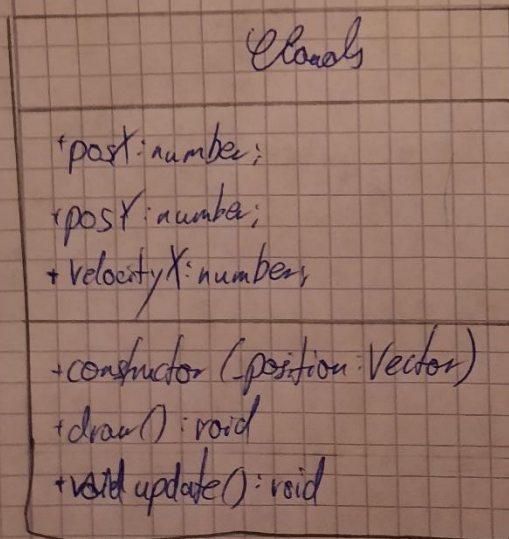 Clouds
+posX: number;
+posY: number;
+velocityX: number;
+constructor (_position: Vector)
+draw(): void
+void update(): void